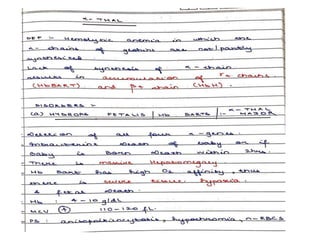 α-THAL
DEF :- Hemolytic anemia in which the
α-chains of globins are not/partly
synthesised.
Lack of synthesis of α-chain
results in accumulation of γ-chains
(Hb BART) and β4 chain (HbH).
DISORDERS :-
(a) HYDROPS FETALIS | Hb BARTS | α-THAL MAJOR
Deletion of all four α-genes.
Intrauterine death of baby or if
Baby is Born death within 2hrs.
There is massive Hepatomegaly
Hb Bart has high O2 affinity, thus
there is severe tissue hypoxia
& fetal death.
Hb : 4-10 g/dl
MCV : 110-120 fl.
PS : anisopoikilocytosis, hypochromia, n-RBCs